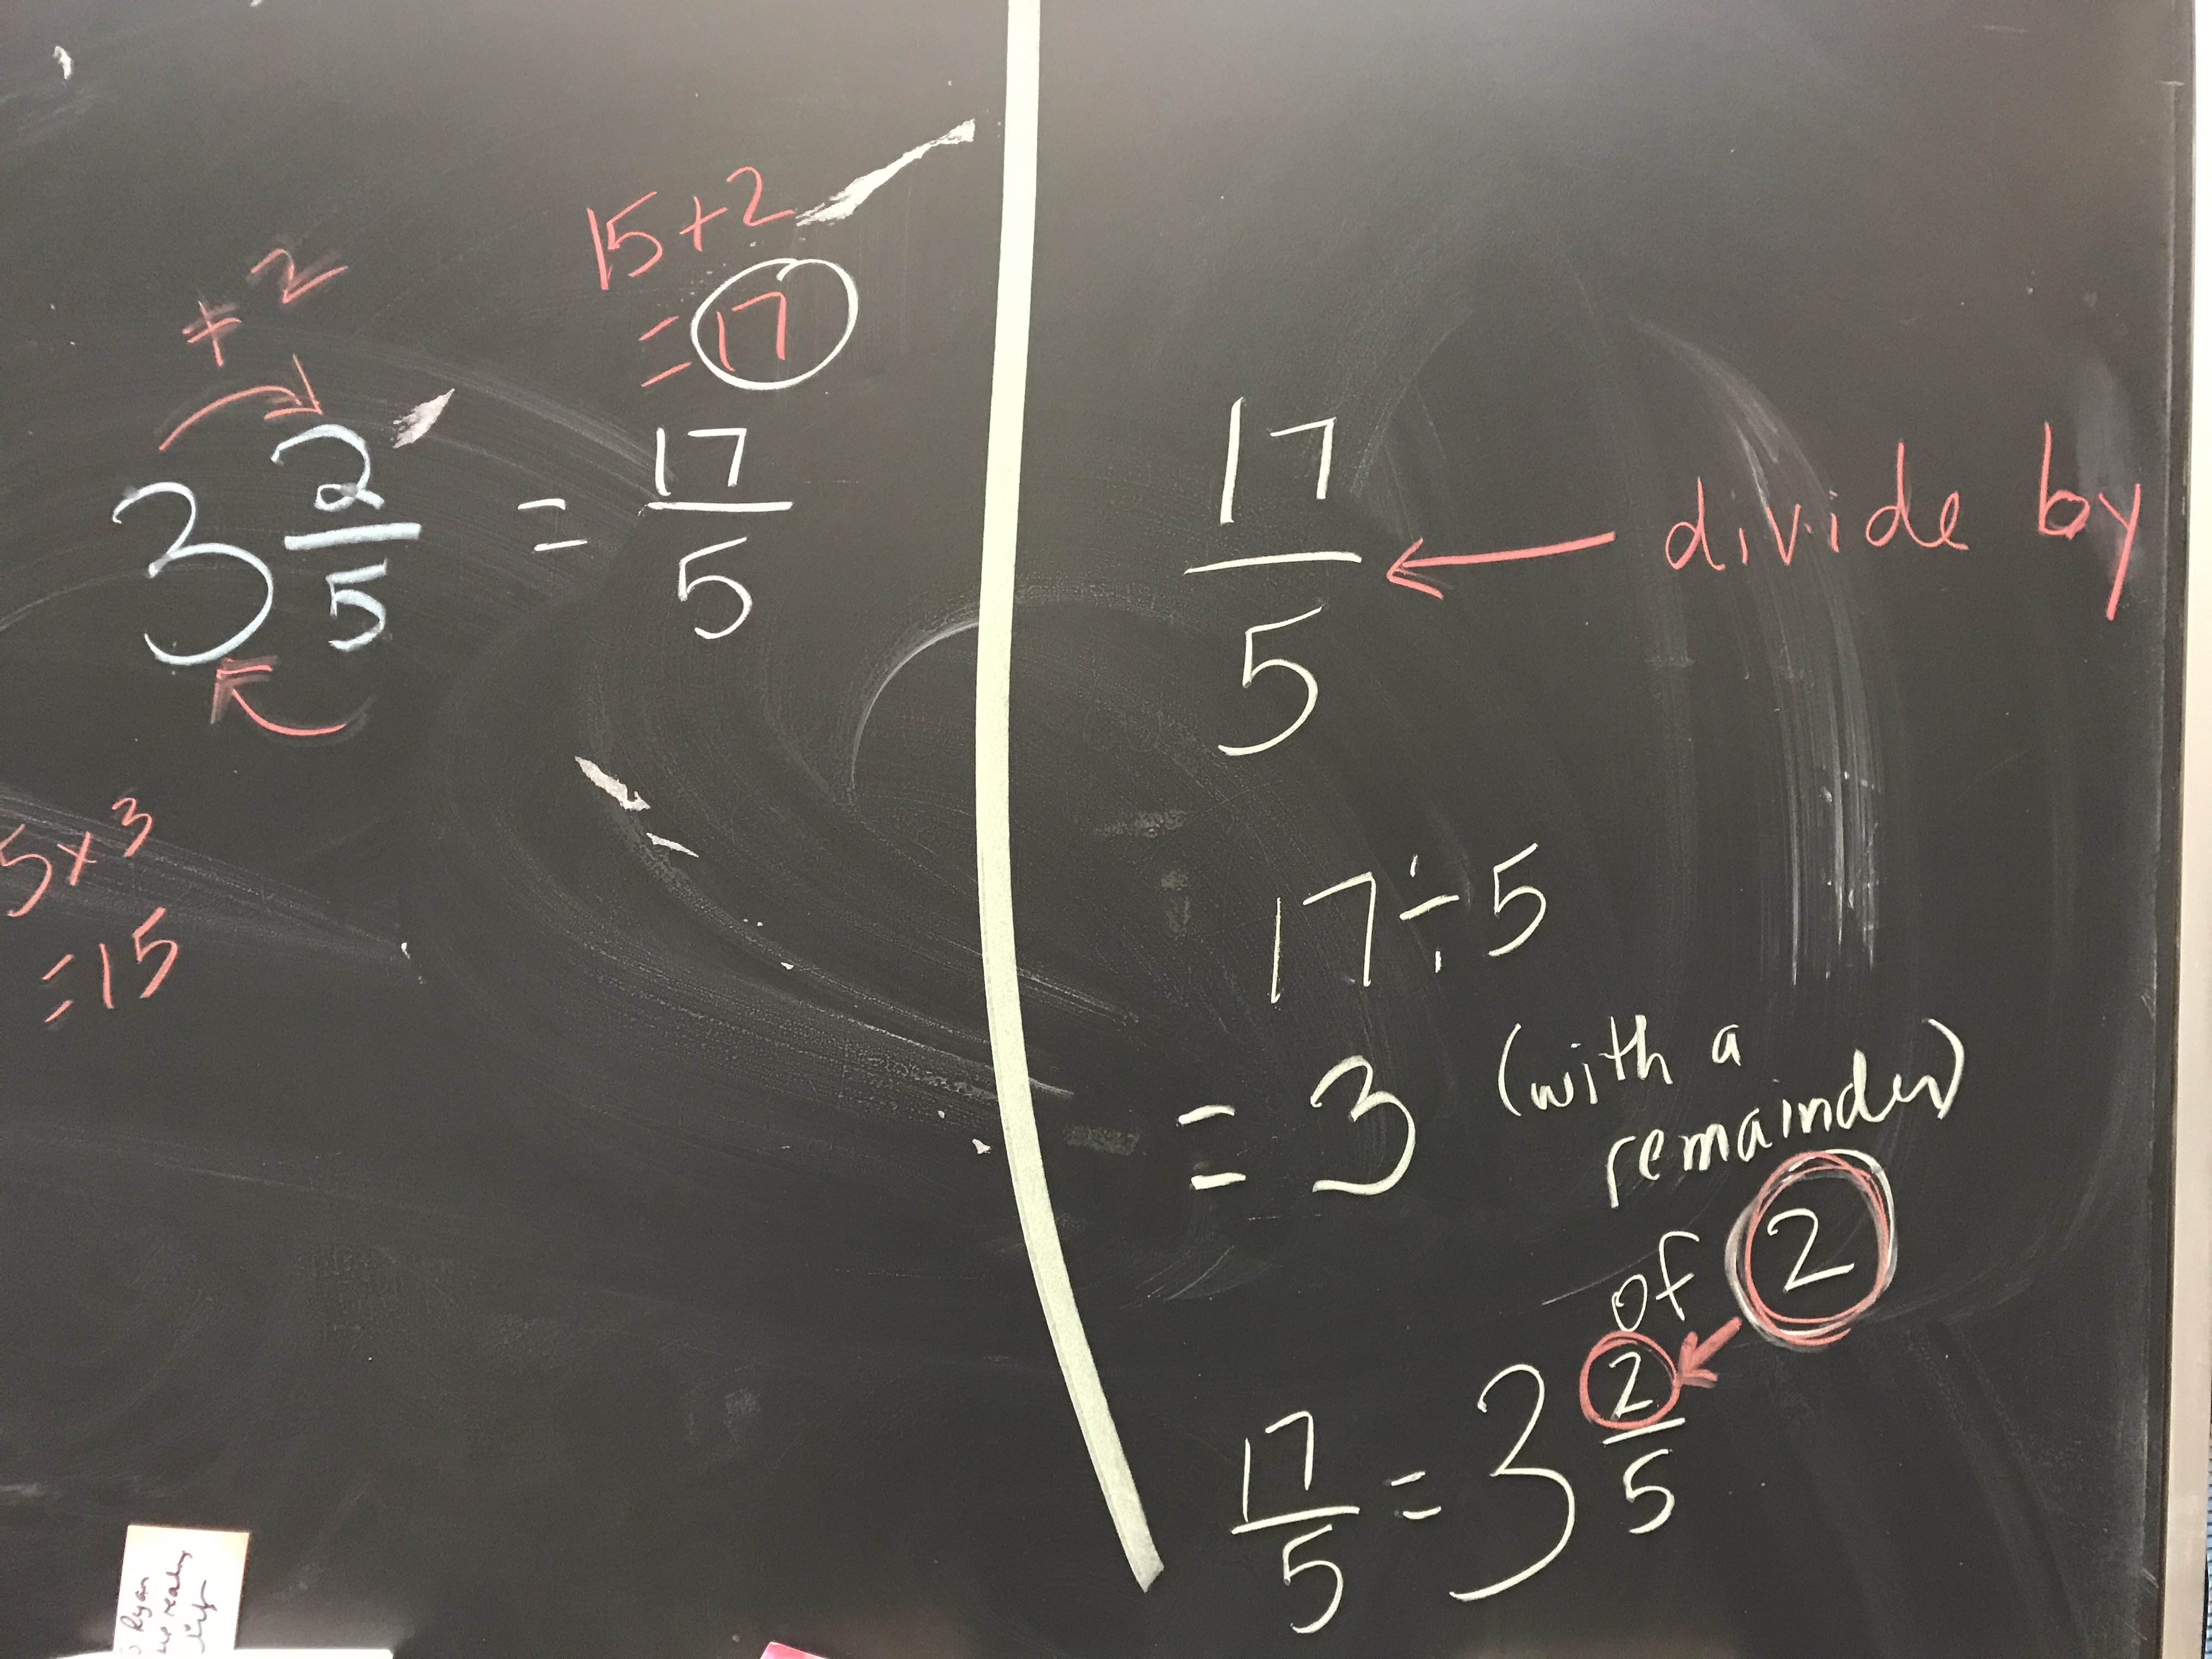 +2
15+2
=17
3 2/5 = 17/5
5x3
=15
17/5 ← divide by
17÷5
= 3 (with a
remainder)
of 2
17/5 = 3 2/5
Ryan